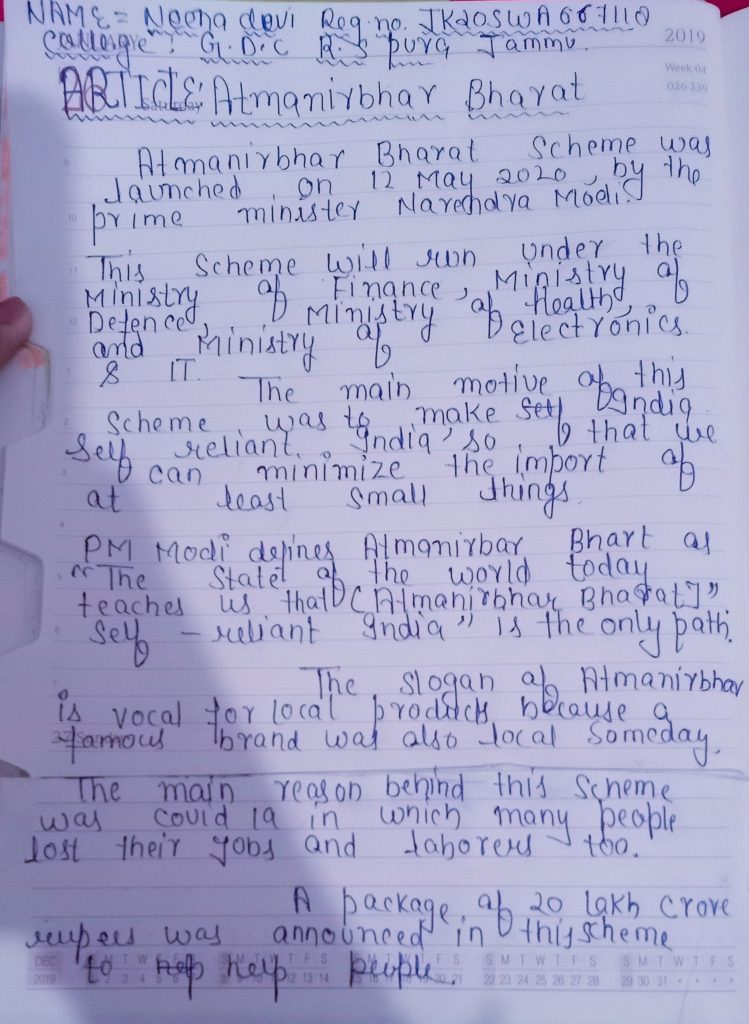 NAME = Neena devi Reg. no. JK20SWA667110
Calleigre : G.D.C R.S pura Jammu.
2019
Week 04
020-339
ARTICLE: Atmanirbhar Bharat
Saturday
Atmanirbhar Bharat Scheme was
launched on 12 May 2020, by the
prime minister Narendra Modi.
This Scheme will run under the
Ministry of Finance, Ministry of
Defence, Ministry of Health,
and Ministry of Electronics
& IT.
The main motive of this
Scheme was to make India
Self reliant India so that we
can minimize the import of
at least small things
PM Modi defines Atmanirbar Bhart as
"The State of the world today
teaches us that (Atmanirbhar Bharat]"
Self - reliant India" is the only path.
The slogan of Atmanirbhar
is vocal for local products because a
famous brand was also local someday.
The main reason behind this Scheme
was covid 19 in which many people
lost their Jobs and laborers too.
A package of 20 lakh crore
rupees was announced in this scheme
to help people.
DEC S M T W T F S S M T W T F S S M T W T F S S M T W T F S S M T W T F S
2019 22 23 24 25 26 27 28 29 30 31